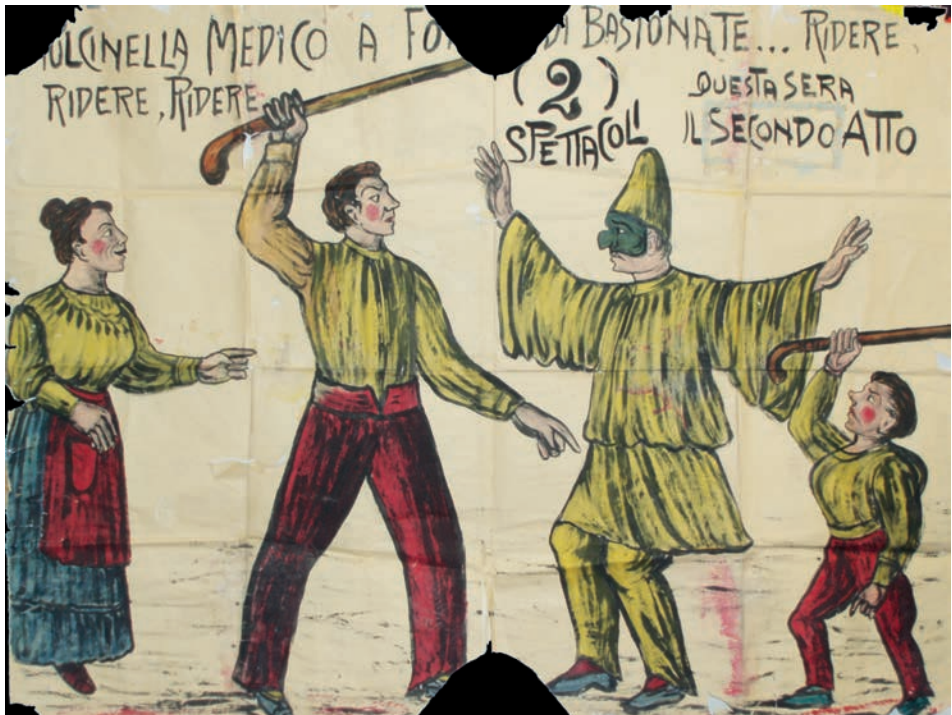 ULCINELLA MEDICO A FO DI BASTONATE... RIDERE,
RIDERE, RIDERE
(2)
SPETTACOLI
QUESTA SERA
IL SECONDO ATTO